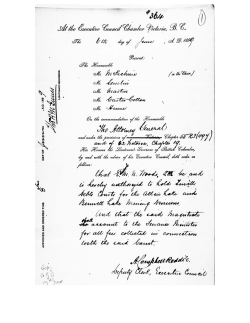 #364
(1)
At the Executive Council Chamber Victoria, B.C.
The 6th day of June A.D. 1899
Present:
The Honourable
Mr. McKechnie (in the Chair)
Mr. Semlin
Mr. Martin
Mr. Carter-Cotton
Mr. Hume
On the recommendation of the Honourable
The Attorney General
and under the provisions of
and of 62 Victoria, Chapter 19.
His Honour the Lieutenant-Governor of British Columbia,
by and with the advice of the Executive Council, doth order as
follows:
That Woods, be and is
hereby authorized to hold Small
Debts Courts for the Atlin Lake and
Bennett Lake Mining Divisions
And that the said Magistrate
account to the Finance Minister
for all fees collected in connection
with the said Court.
A. Campbell Reddie
Deputy Clerk, Executive Council